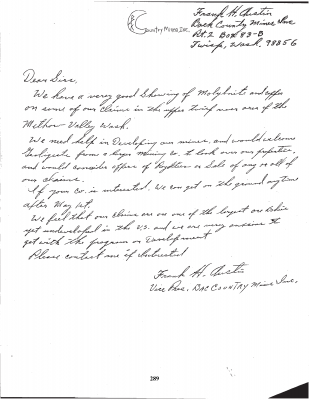 Country Mines, Inc.
Frank H. Austin
Back Country Mines Inc
Rt. 2 Box 83-B
Twisp, Wash. 98856
Dear Sirs.
We have a very good Showing of Molybnite and
on some of our Claims in the upper Twisp river area of the
Methow Valley Wash.
We need help in Developing our mines, and would welcome
Geologists from a Major Mining Co. to look over our properties
and would consider offers of Royalties or Sale of any or all of
our Claims.
If your Co. is interested. We can get on the ground any time
after May 1st.
We feel that our Claims are on one of the largest ore
yet undeveloped in the U.S. and we are very anxious to
get with the program on Development
Please contact me if Interested
Frank H. Austin
Vice Pres. Bac Country Mines Inc.
289